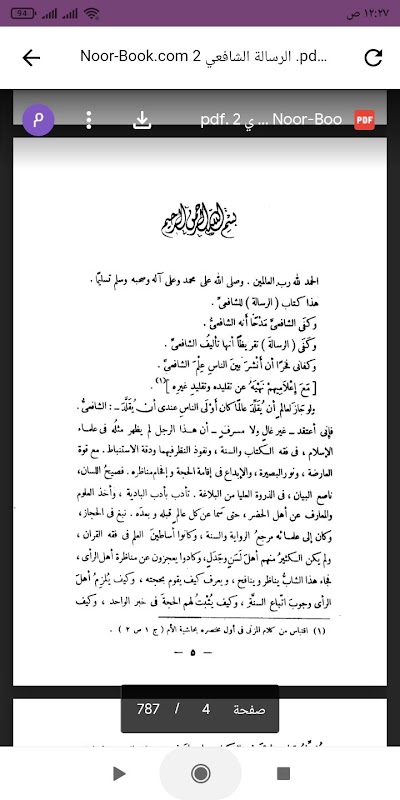 94
١٢:٢٧ ص
Noor-Book.com الرسالة الشافعي 2 .pd...
م
pdf. 2 ي ... Noor-Boo
PDF
بسم الله الرحمن الرحيم
الحمد لله رب العالمين . وصلى الله على محمد وعلى آله وصحبه وسلم تسليمًا .
هذا كتاب ( الرسالة ) للشافعىّ .
وكفى الشافعىَّ مَدْحًا أنه الشافعىُّ .
وكَفَى ( الرسالةَ ) تقريظًا أنها تأليفُ الشافعىِّ .
وكفانى فخرًا أن أَنْشُرَ بينَ الناسِ عِلْمَ الشافعىِّ .
[ مَعَ إِعْلَامِيهِمْ نَهْيَهُ عن تقليده وتقليدِ غيرِه ](١) .
ولو جاز لعالمٍ أن يُقَلِّدَ عالمًا كان أَوْلَى الناس عندى أن يُقَلَّدَ ـ : الشافعىُّ .
فإنى أعتقد ـ غيرَ غالٍ ولا مسرفٍ ـ أن هذا الرجل لم يظهر مثلُه فى علماء
الإسلام ، فى فقه الكتاب والسنة ، ونفوذ النظر فيهما ودقة الاستنباط . مع قوة
العارضة ، ونور البصيرة ، والإبداع فى إقامة الحجة وإفحام مناظره . فصيحُ اللسان ،
ناصع البيان ، فى الذروة العليا من البلاغة . تأدب بأدب البادية ، وأخذ العلوم
والمعارف عن أهل الحضر ، حتى سما عن كل عالمٍ قبله وبعدَه . نبغ فى الحجاز ،
وكان إلى علمائه مرجعُ الرواية والسنة ، وكانوا أساطينَ العلم فى فقه القران ،
ولم يكن الكثيرُ منهم أهلَ لَسَنٍ وجَدَلٍ ، وكادوا يعجزون عن مناظرة أهل الرأى ،
فجاء هذا الشابُّ يناظر وينافح ، ويعرف كيف يقوم بحجته ، وكيف يُلزمُ أهلَ
الرأى وجوبَ اتّباع السنة ، وكيف يُثْبِتُ لهم الحجةَ فى خبر الواحد ، وكيف
(١) اقتباس من كلام المزنى فى أول مختصره بحاشية الأم ( ج ١ ص ٢ ) .
— ٥ —
صفحة 4 / 787